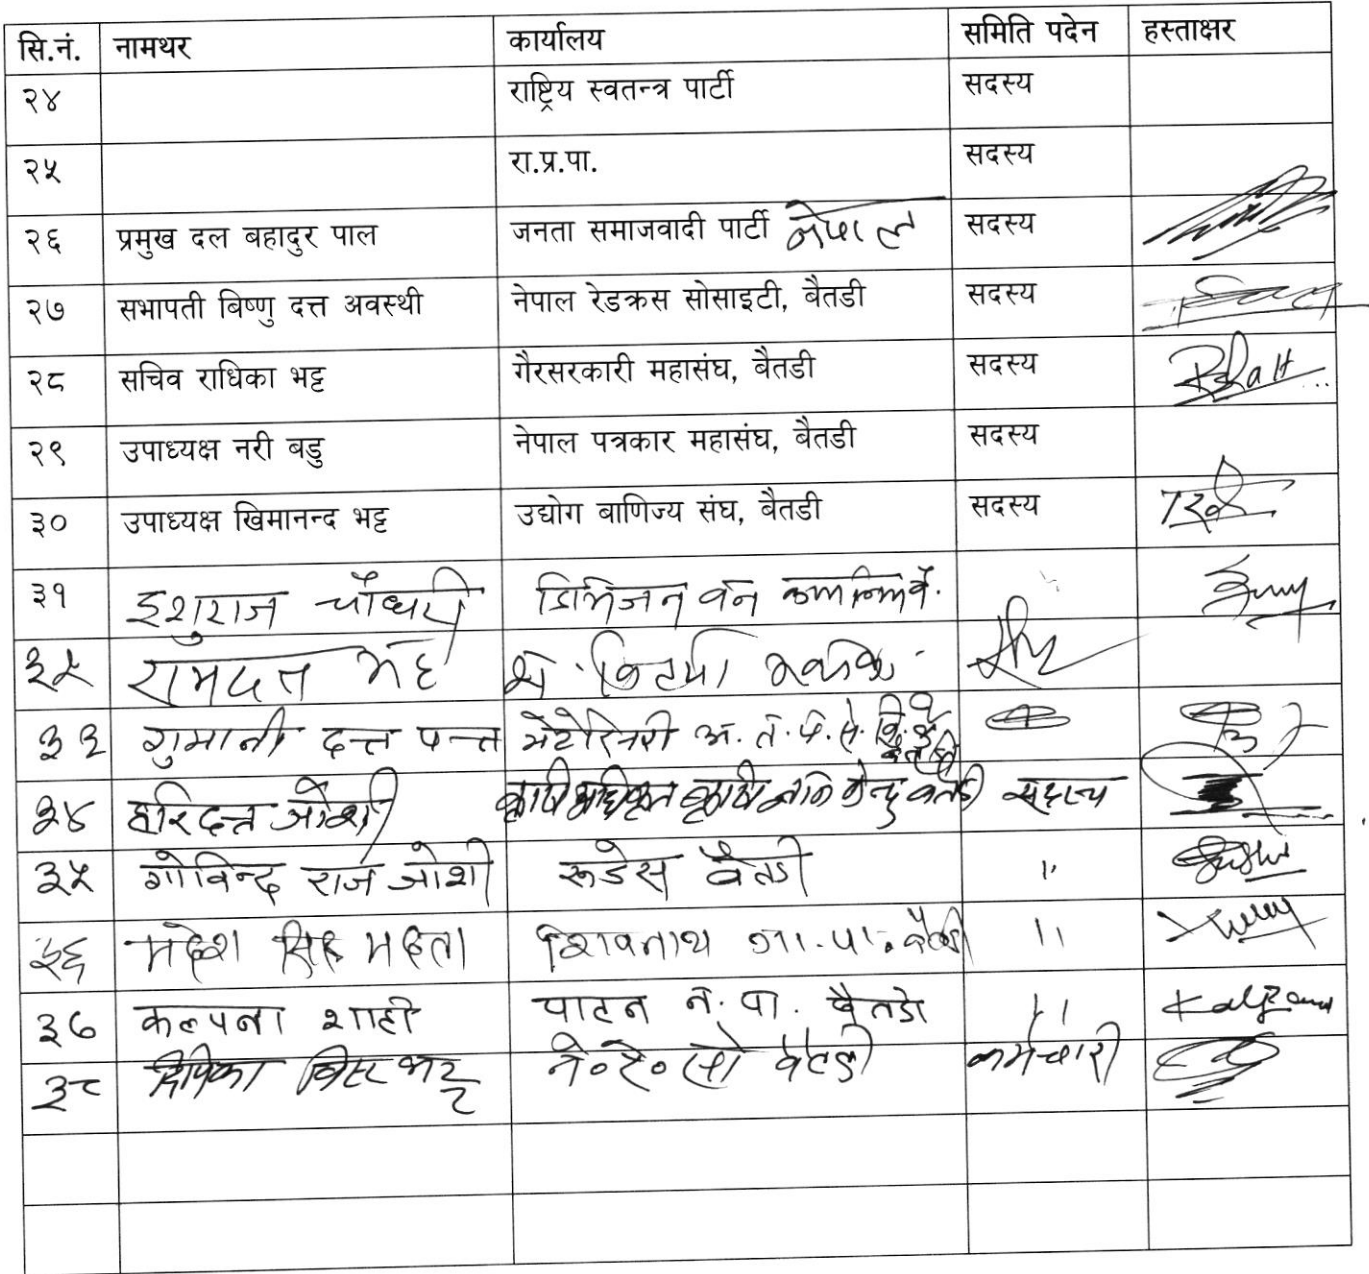 सि.नं. नामथर कार्यालय समिति पदेन हस्ताक्षर
२४ राष्ट्रिय स्वतन्त्र पार्टी सदस्य
२५ रा.प्र.पा. सदस्य
२६ प्रमुख दल बहादुर पाल जनता समाजवादी पार्टी नेपाल सदस्य
२७ सभापती बिष्णु दत्त अवस्थी नेपाल रेडक्रस सोसाइटी, बैतडी सदस्य
२८ सचिव राधिका भट्ट गैरसरकारी महासंघ, बैतडी सदस्य
२९ उपाध्यक्ष नरी बडु नेपाल पत्रकार महासंघ, बैतडी सदस्य
३० उपाध्यक्ष खिमानन्द भट्ट उद्योग बाणिज्य संघ, बैतडी सदस्य
३१ इशुराज चौधरी डिभिजन वन
३२ रामदत्त भट्ट
३३ गुमानी दत्त पन्त भेटेरिनरी
३४ हरिदत्त जोशी कृषि अधिकृत कृषि ज्ञान केन्द्र बैतडी सदस्य
३५ गोविन्द राज जोशी रूडेस बैतडी "
३६ महेश सिंह महता शिवनाथ गा.पा. बैतडी "
३७ कल्पना शाही पाटन न.पा. बैतडी " Kalpana
३८ दीपिका बिष्ट भट्ट ने०रे०सो बैतडी कर्मचारी